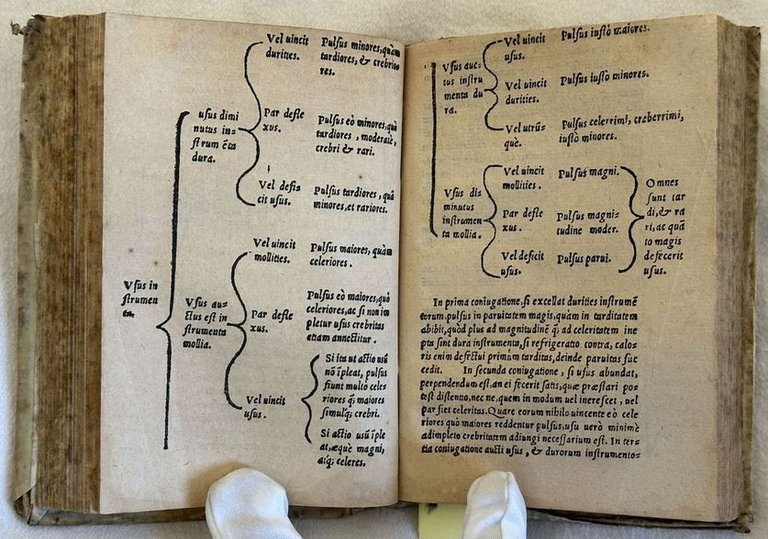 Vel uincit
durities.
Pulsus minores, quàm
tardiores, & crebrio
res.
usus dimi
nutus in-
strum ēta
dura.
Par defle
xus.
Pulsus eò minores, quò
tardiores, moderatè,
crebri & rari.
Vel defi-
cit usus.
Pulsus tardiores, quā
minores, et rariores.
Vsus in
strumen
ta.
Vsus au-
ctus est in
strumenta
mollia.
Vel uincit
mollities.
Pulsus maiores, quàm
celeriores.
Par defle
xus.
Pulsus eò maiores, quò
celeriores, ac si non im
pletur usus crebritas
etiam annectitur.
Vel uincit
usus.
Si ita ut actio usū
nō īpleat, pulsus
fiunt multò celes
riores q̄; maiores
simulq; crebri.
Si actio usū īple
at, æquè magni,
atq; celeres.
Vsus auc-
tus instru
menta du
ra.
Vel uincit
usus.
Pulsus iustò maiores.
Vel uincit
durities.
Pulsus iustò minores.
Vel utrū-
què.
Pulsus celerrimi, creberrimi,
iustò minores.
Vsus di-
minutus
instrumen
ta mollia.
Vel uincit
mollities.
Pulsus magni.
Par defle
xus.
Pulsus magni-
tudine moder.
Vel deficit
usus.
Pulsus parui.
Omnes
sunt tar
di, & ra
ri, ac quā
to magis
defecerit
usus.
In prima coniugatione, si excellat durities instrumē
torum, pulsus in paruitatem magis, quàm in tarditatem
abibit, quòd plus ad magnitudinē q̄; ad celeritatem ine
pta sint dura instrumenta, si refrigeratio contra, calo-
ris enim defectui primùm tarditas, deinde paruitas suc
cedit. In secunda coniugatione, si usus abundat,
perpendendum est, an ei fecerit satis, quæ præstari po-
test distentio, nec ne, quem in modum uel increscet, uel
par fiet celeritas. Quare eorum nihilo uincente eò cele
riores quò maiores reddentur pulsus, usu uerò minimè
adimpleto crebritatem adiungi necessarium est. In ter-
tia coniugatione aucti usus, & durorum instrumento-